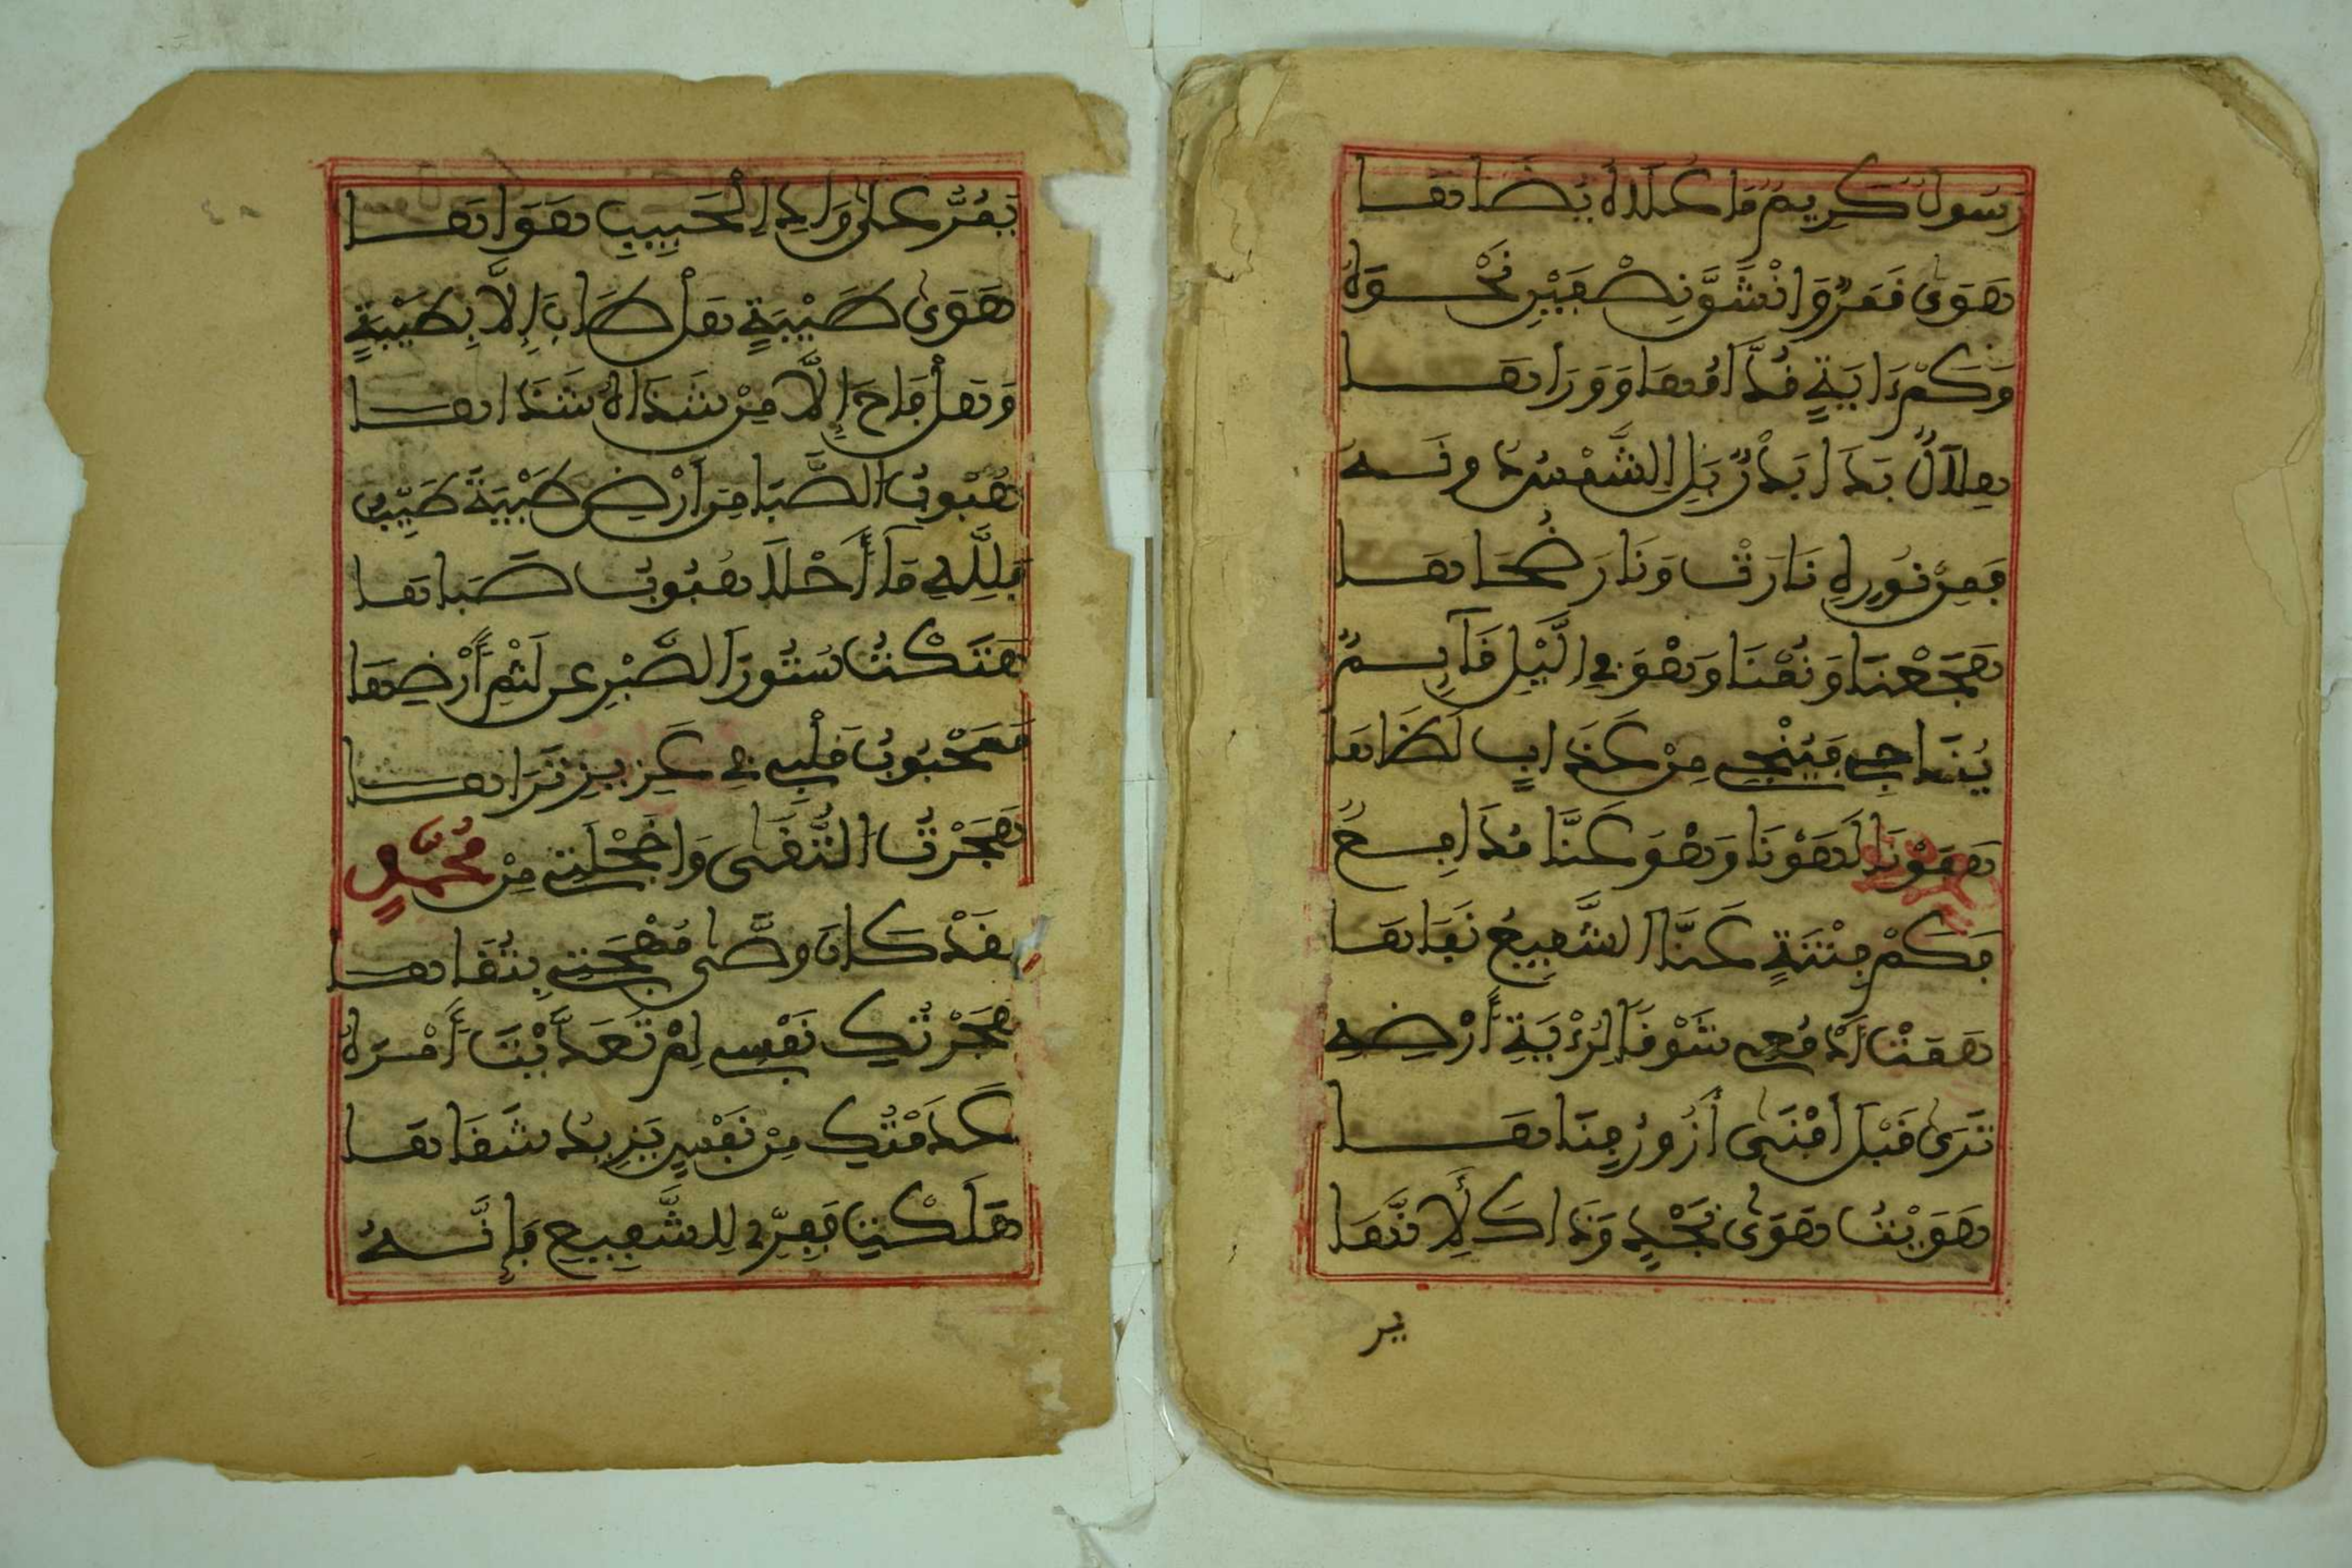 رَسُولٌ كَرِيمٌ مَا عُلَاهُ يُضَاهَا
هَوَى قَمَرٌ وَانْشَقَّ نِصْفَيْنِ نَحْوَهُ
وَكَمْ ءَايَةٍ قُدَّامُهَا وَوَرَاهَا
هِلَالٌ بَدَا بَدْرٌ بَلِ الشَّمْسُ دُونَهُ
فَمِنْ نُورِهِ نَارَتْ وَنَارَ ضُحَاهَا
هَجَعْنَا وَنُمْنَا وَهْوَ فِي الَّيْلِ قَآئِمٌ
يُنَاجِي فَيُنْجِي مِنْ عَذَابِ لَظَاهَا
هَفَوْنَا لَهَوْنَا وَهْوَ عَنَّا مُدَافِعٌ
فَكَمْ فِتْنَةٍ عَنَّا الشَّفِيعُ نَفَاهَا
هَمَتْ أَدْمُعِي شَوْقًا لِرُؤْيَةِ أَرْضِهِ
تَرَى قَبْلَ أَفْنَى أَزُورُ فِنَاهَا
هَوَيْتُ هَوَى نَجْدٍ وَذَاكَ لِأَنَّهَا
يمر
يَمُرُّ عَلَى وَادِ الْحَبِيبِ هَوَاهَا
هَوَى طَيْبَةٍ هَلْ طَابَ إِلَّا بِطَيْبَةٍ
وَهَلْ فَاحَ إِلَّا مِنْ شَذَاهُ شَذَاهَا
هُبُوبُ الصَّبَا مِنْ أَرْضِ طَيْبَةَ طَيِّبٌ
فَلِلَّهِ مَا أَحْلَا هُبُوبُ صَبَاهَا
هَتَكْتُ سُتُورَ الصَّبْرِ عَنْ لَثْمِ أَرْضِهَا
فَمَحْبُوبُ قَلْبِي فِي عَزِيزِ ثَرَاهَا
هَجَرْتُ التُّقَى وَاخَجْلَتِي مِنْ مُحَمَّدٍ
لَقَدْ كَانَ وَصَّى مُهْجَتِي بِتُقَاهَا
هَجَرْتُكِ نَفْسِي لِمْ تَعَدَّيْتَ أَمْرَهُ
عَدِمْتُكِ مِنْ نَفْسٍ يَزِيدُ شَقَاهَا
هَلَكْتِ فَفِرِّي لِلشَّفِيعِ فَإِنَّهُ